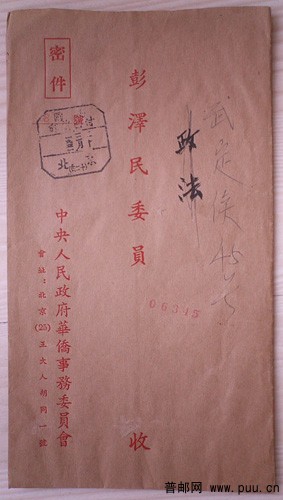 密件
彭澤民委員 收
政法
06315
中央人民政府華僑事務委員會
會址：北京(25)王大人胡同一號
普邮网 www.puu.cn